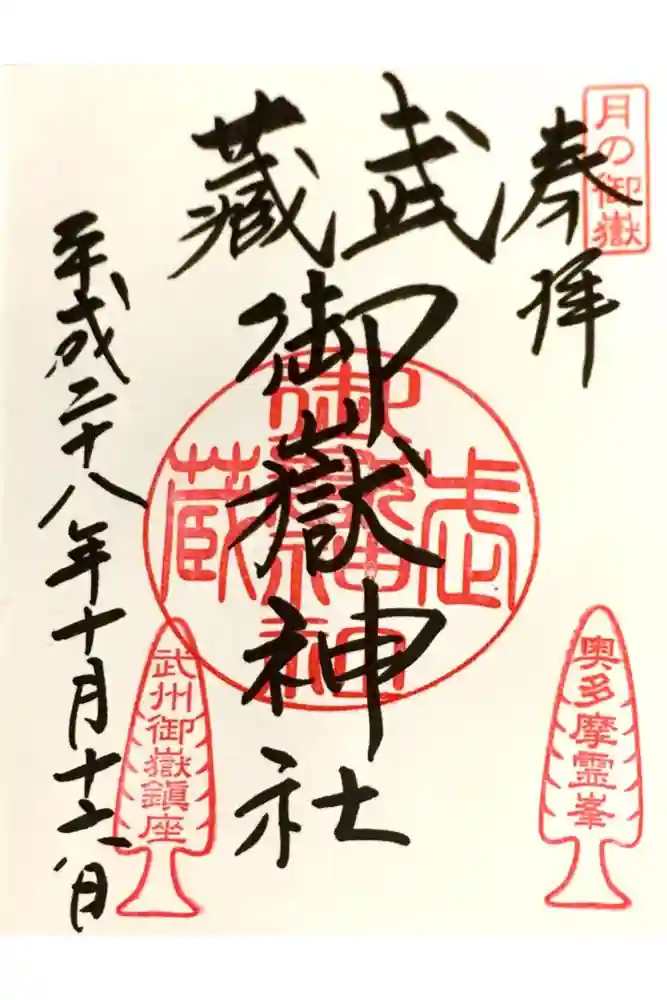 月の御嶽
奉拝
武藏
御嶽神社
武蔵御嶽神社
奥多摩霊峯
武州御嶽鎮座
平成二十八年十月十六日